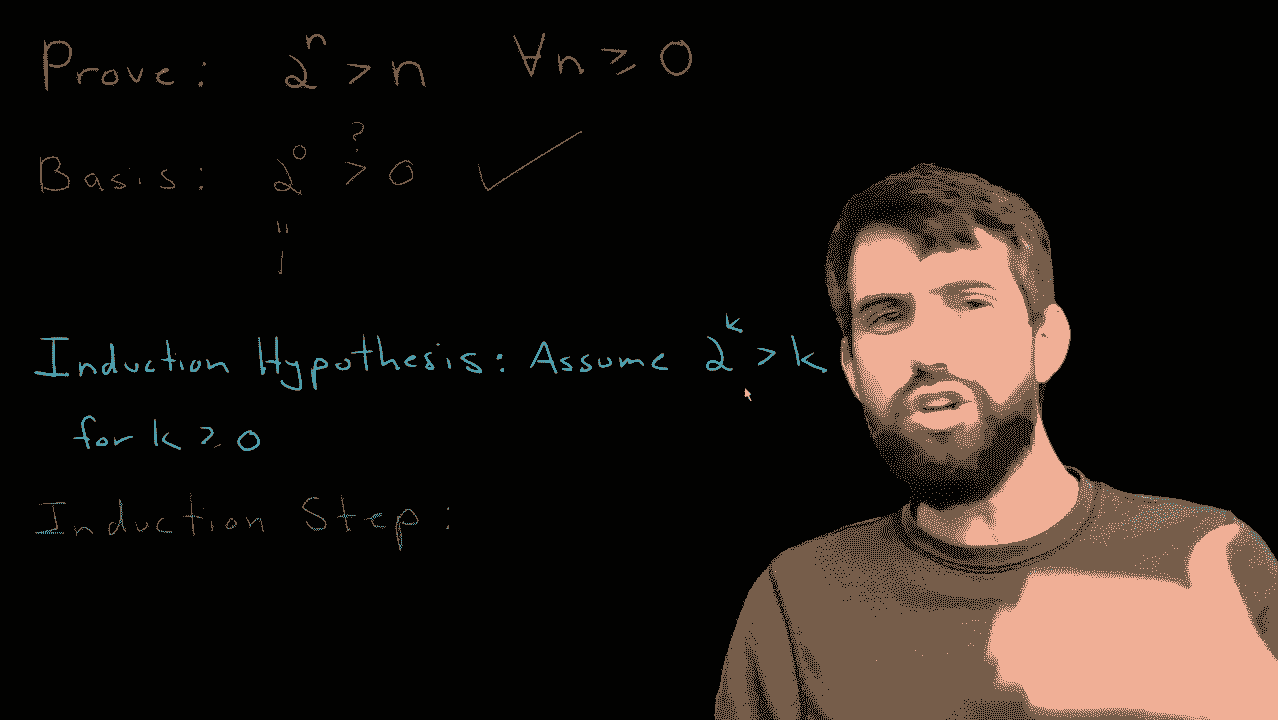 Prove: 2ⁿ > n ∀n ≥ 0
Basis: 2⁰ >? 0 ✓
"
1
Induction Hypothesis: Assume 2ᵏ > k
for k ≥ 0
Induction Step: